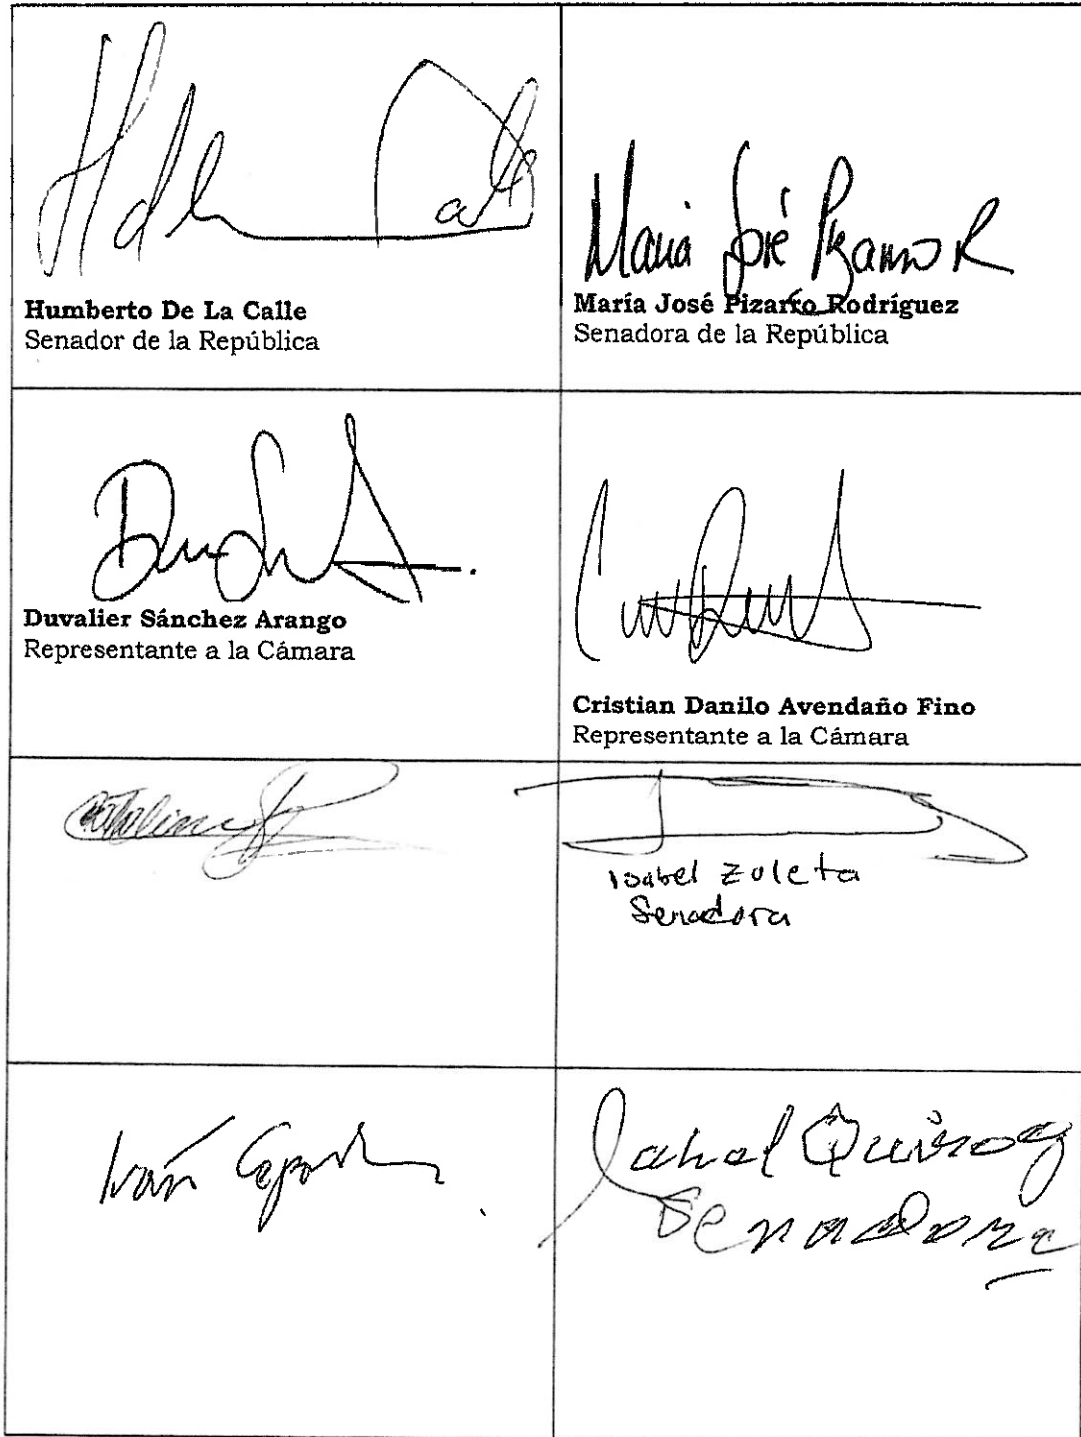 Humberto De La Calle
Senador de la República
Maria José Pizarro R
María José Pizarro Rodríguez
Senadora de la República
Duvalier Sánchez Arango
Representante a la Cámara
Cristian Danilo Avendaño Fino
Representante a la Cámara
Catalina
Isabel Zuleta
Senadora
Iván Cepeda
Jahel Quiroga
Senadora